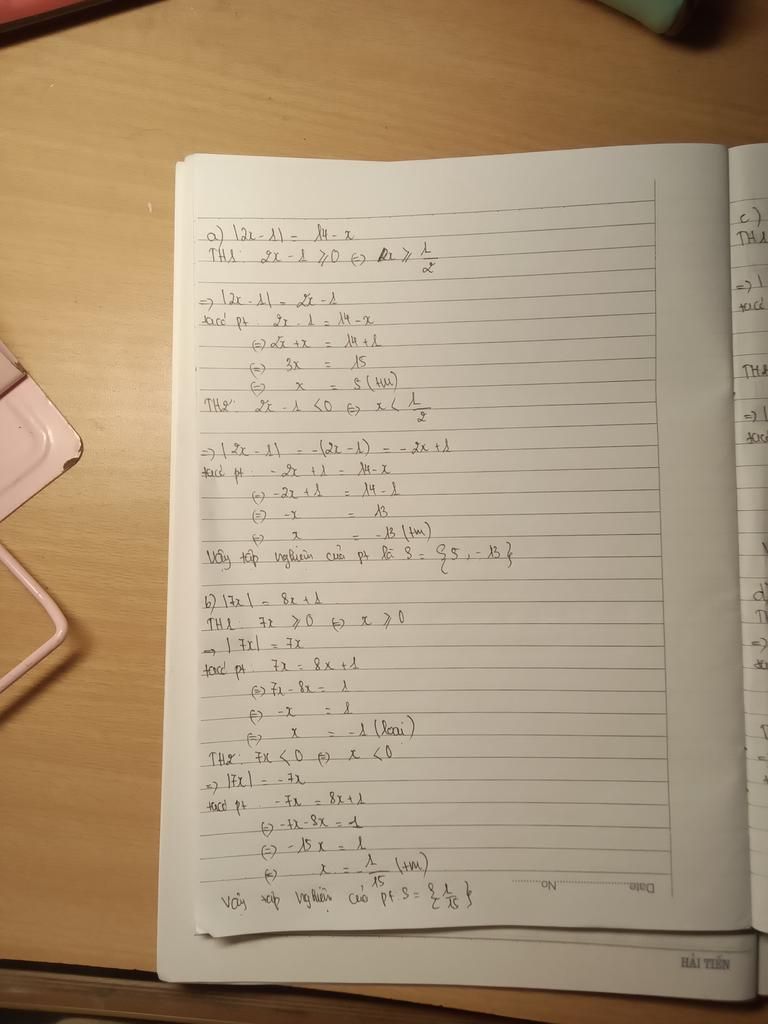 a) |2x - 1| = 14 - x
TH1: 2x - 1 ⩾ 0 ⇔ x ⩾ 1/2
⇒ |2x - 1| = 2x - 1
ta có pt: 2x - 1 = 14 - x
⇔ 2x + x = 14 + 1
⇔ 3x = 15
⇔ x = 5 (tm)
TH2: 2x - 1 < 0 ⇔ x < 1/2
⇒ |2x - 1| = -(2x - 1) = -2x + 1
ta có pt: -2x + 1 = 14 - x
⇔ -2x + 1 = 14 - 1
⇔ -x = 13
⇔ x = -13 (tm)
Vậy tập nghiệm của pt là S = {5, -13}
b) |7x| = 8x + 1
TH1: 7x ⩾ 0 ⇔ x ⩾ 0
⇒ |7x| = 7x
ta có pt: 7x = 8x + 1
⇔ 7x - 8x = 1
⇔ -x = 1
⇔ x = -1 (loại)
TH2: 7x < 0 ⇔ x < 0
⇒ |7x| = -7x
ta có pt: -7x = 8x + 1
⇔ -7x - 8x = 1
⇔ -15x = 1
⇔ x = -1/15 (tm)
Vậy tập nghiệm của pt S = {1/15}
Date............No............
HẢI TIẾN
c)
TH1
⇒ |
ta có
TH2
⇒ |
ta có
d)